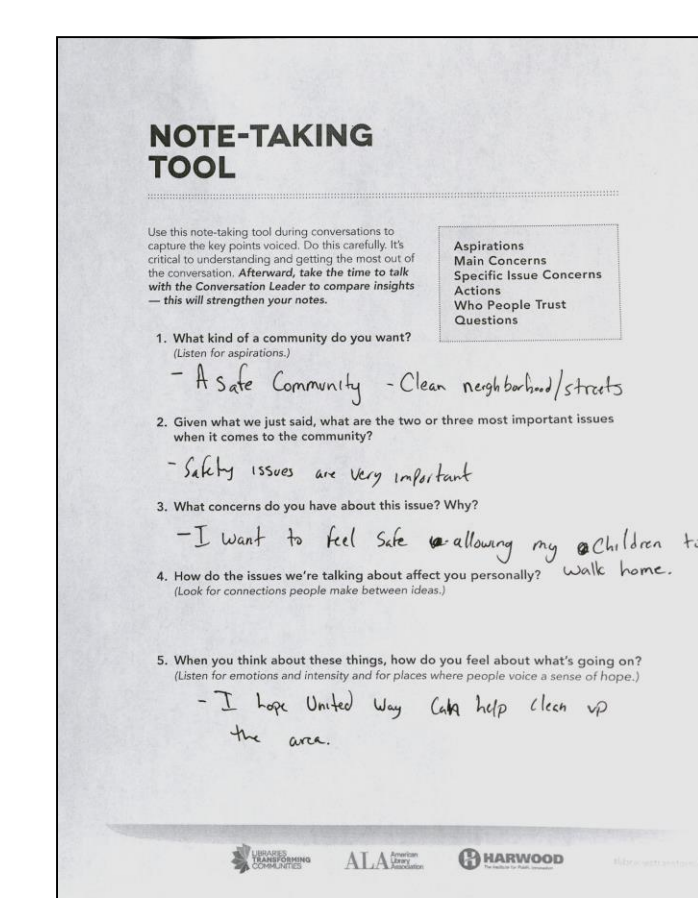 NOTE-TAKING
TOOL
Use this note-taking tool during conversations to
capture the key points voiced. Do this carefully. It's
critical to understanding and getting the most out of
the conversation. Afterward, take the time to talk
with the Conversation Leader to compare insights
— this will strengthen your notes.
Aspirations
Main Concerns
Specific Issue Concerns
Actions
Who People Trust
Questions
1. What kind of a community do you want?
(Listen for aspirations.)
- A Safe Community - Clean neighborhood/streets
2. Given what we just said, what are the two or three most important issues
when it comes to the community?
- Safety issues are very important
3. What concerns do you have about this issue? Why?
- I want to feel safe allowing my Children to
walk home.
4. How do the issues we're talking about affect you personally?
(Look for connections people make between ideas.)
5. When you think about these things, how do you feel about what's going on?
(Listen for emotions and intensity and for places where people voice a sense of hope.)
- I hope United Way can help clean up
the area.
LIBRARIES
TRANSFORMING
COMMUNITIES
ALA American
Library
Association
HARWOOD